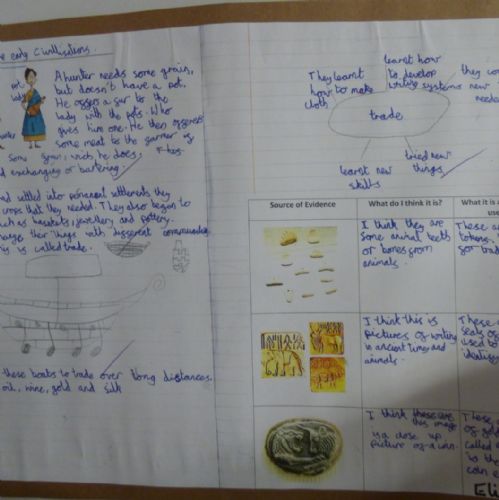 early Civilisations.
pot
lady
A hunter needs some grain,
but doesn't have a pot.
He offers a fur to the
lady with the pots. Who
gives him one. He then offers
some meat to the farmer
some grain, wich he does.
exchanging or bartering.
settled into permanent settlements they
crops that they needed. They also began to
such as baskets, jewellery and pottery.
their things with different communities
is is called trade.
these boats to trade over long distances
oil, wine, gold and silk
learnt how
to develop
writing systems
They learnt
how to make
cloth
new
trade
learnt new
skills
tried new
things
Source of Evidence
What do I think it is?
What it is
I think they are
some animal teeth
or bones from
animals.
These
tokens
for
I think this is
pictures of writing
in ancient times and
animals.
These
seals of
used to
I think
this image
is a close up
picture of a coin.
These
of gold
called
is the
coin